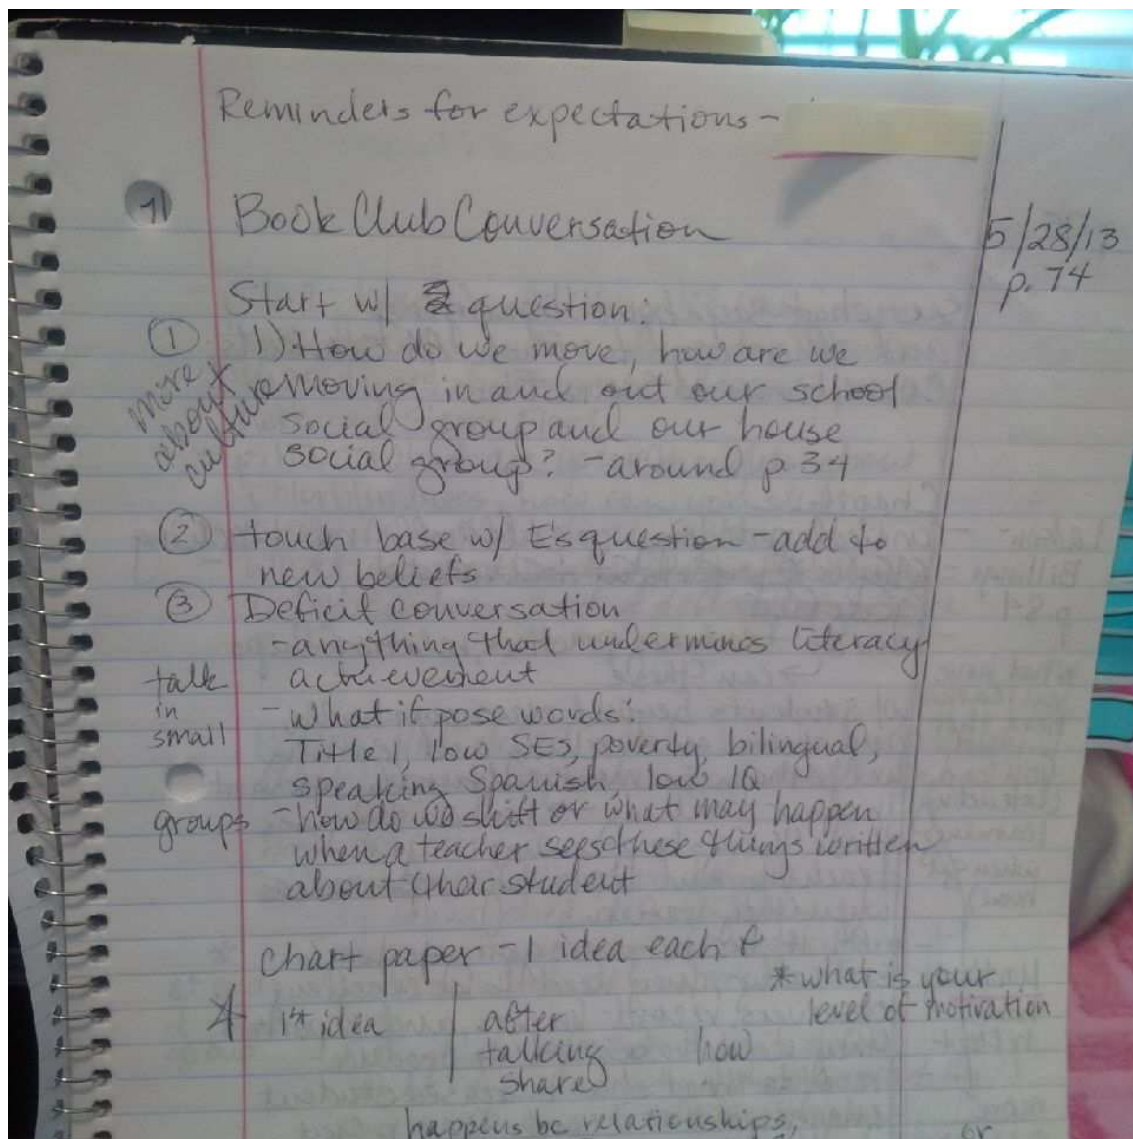 Reminders for expectations -
Book Club Conversation
5/28/13
p. 74
Start w/ question:
① 1) How do we move, how are we
more about culture
moving in and out our school
social group and our house
social group? - around p 34
② touch base w/ E's question - add to
new beliefs
③ Deficit conversation
- anything that undermines literacy
achievement
talk
in
small
groups
- what if pose words:
Title 1, low SES, poverty, bilingual,
speaking Spanish, low IQ
- how do we shift or what may happen
when a teacher sees these things written
about their student
chart paper - 1 idea each
* what is your
level of motivation
1st idea | after
talking
share
how
happens bc relationships,
or